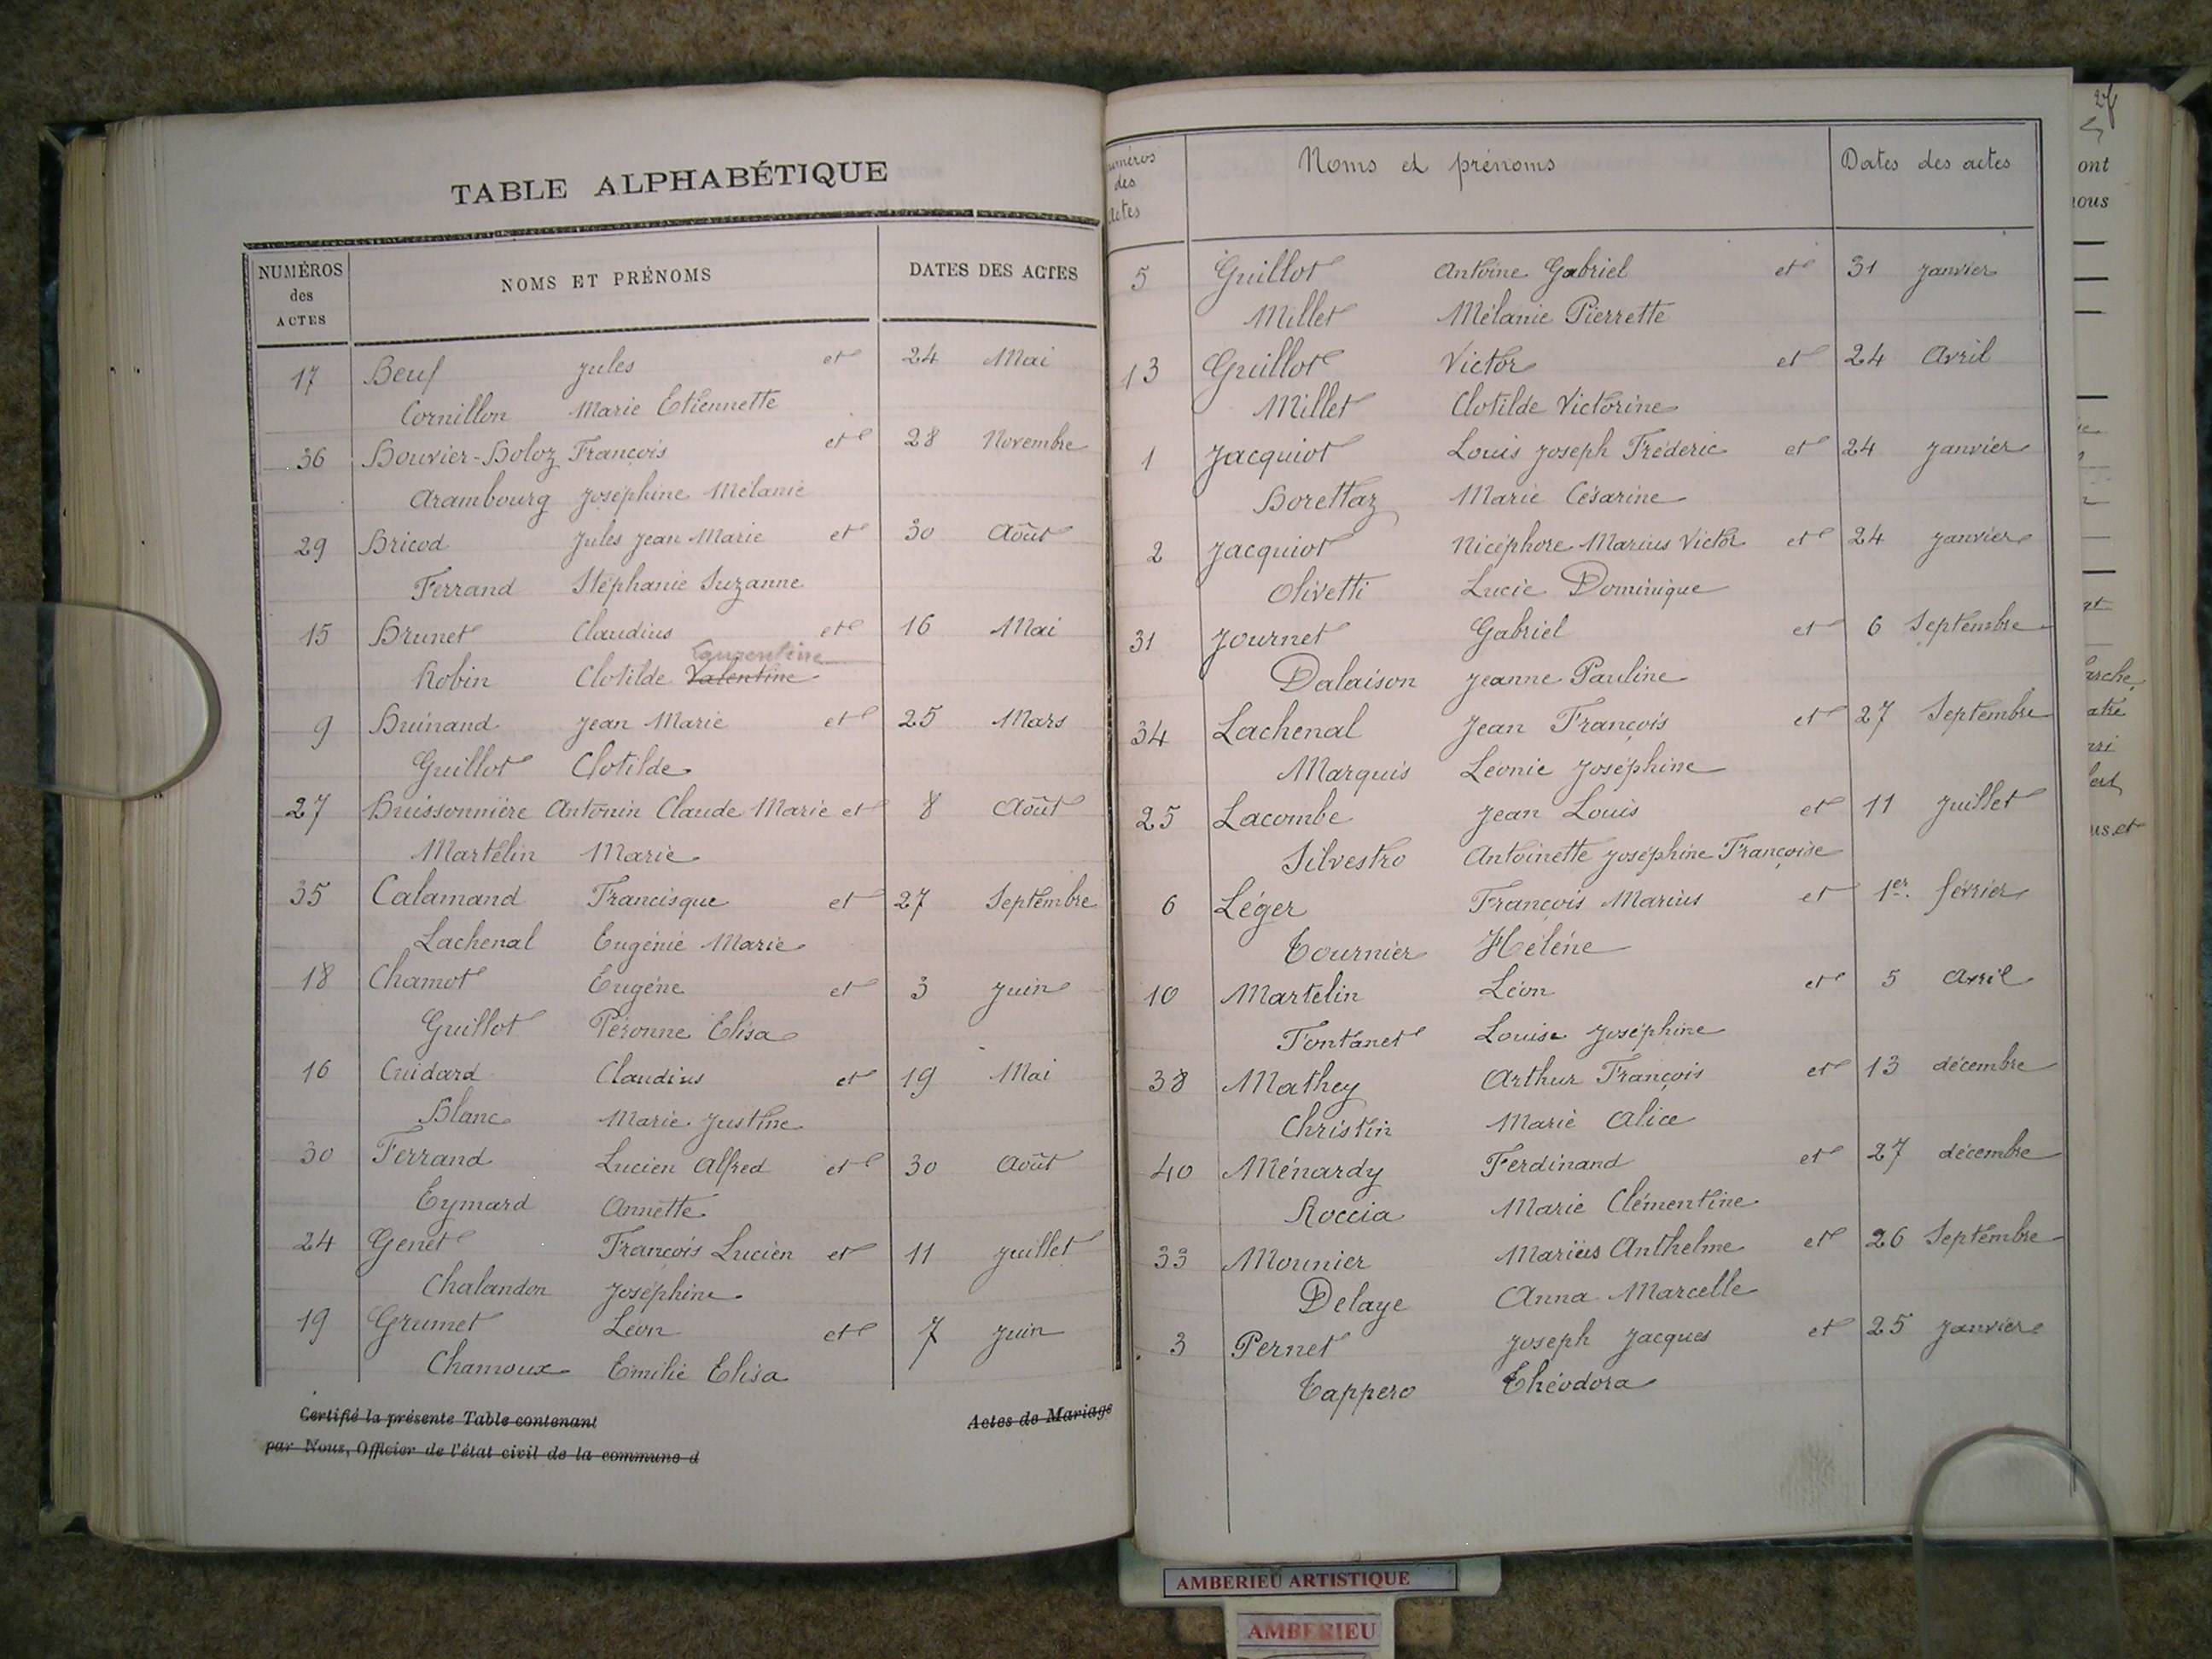 TABLE ALPHABÉTIQUE
NUMÉROS des ACTES NOMS ET PRÉNOMS DATES DES ACTES
17 Beuf Jules et 24 Mai
Cornillon Marie Etiennette
36 Bouvier-Boloz François et 28 Novembre
Arambourg Joséphine Mélanie
29 Bricod Jules Jean Marie et 30 Août
Ferrand Stéphanie Suzanne
15 Brunet Claudius et 16 Mai
Laurentine
Robin Clotilde Valentine
9 Buinand Jean Marie et 25 Mars
Guillot Clotilde
27 Buissonnière Antonin Claude Marie et 8 Août
Martelin Marie
35 Calamand Francisque et 27 Septembre
Lachenal Eugénie Marie
18 Chamot Eugène et 3 Juin
Guillot Péronne Elisa
16 Cuidard Claudius et 19 Mai
Blanc Marie Justine
30 Ferrand Lucien Alfred et 30 Août
Eymard Annette
24 Genet François Lucien et 11 Juillet
Chalandon Joséphine
19 Grumet Léon et 7 Juin
Chamoux Emilie Elisa
Certifié la présente Table contenant Actes de Mariage
par Nous, Officier de l'état civil de la commune d
numéros des Actes Noms et prénoms Dates des actes
5 Guillot Antoine Gabriel et 31 Janvier
Millet Mélanie Pierrette
13 Guillot Victor et 24 Avril
Millet Clotilde Victorine
1 Jacquiot Louis Joseph Fréderic et 24 Janvier
Borettaz Marie Césarine
2 Jacquiot Nicéphore Marius Victor et 24 Janvier
Olivetti Lucie Dominique
31 Journet Gabriel et 6 Septembre
Dalaison Jeanne Pauline
34 Lachenal Jean François et 27 Septembre
Marquis Léonie Joséphine
25 Lacombe Jean Louis et 11 Juillet
Silvestro Antoinette Joséphine Françoise
6 Léger François Marius et 1er février
Tournier Hélène
10 Martelin Léon et 5 Avril
Fontanet Louise Joséphine
38 Mathey Arthur François et 13 décembre
Christin Marie Alice
40 Ménardy Ferdinand et 27 décembre
Roccia Marie Clémentine
33 Mounier Marius Anthelme et 26 Septembre
Delaye Anna Marcelle
3 Pernet Joseph Jacques et 25 Janvier
Tappero Théodora
ont
nous
arche
us et
AMBERIEU ARTISTIQUE
AMBERIEU